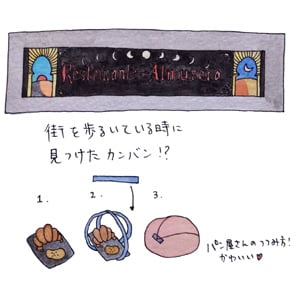 Restaurante Almuzara
街を歩るいている時に
見つけたカンバン!?
1. 2. 3.
パン屋さんのつつみ方!
かわいい♥